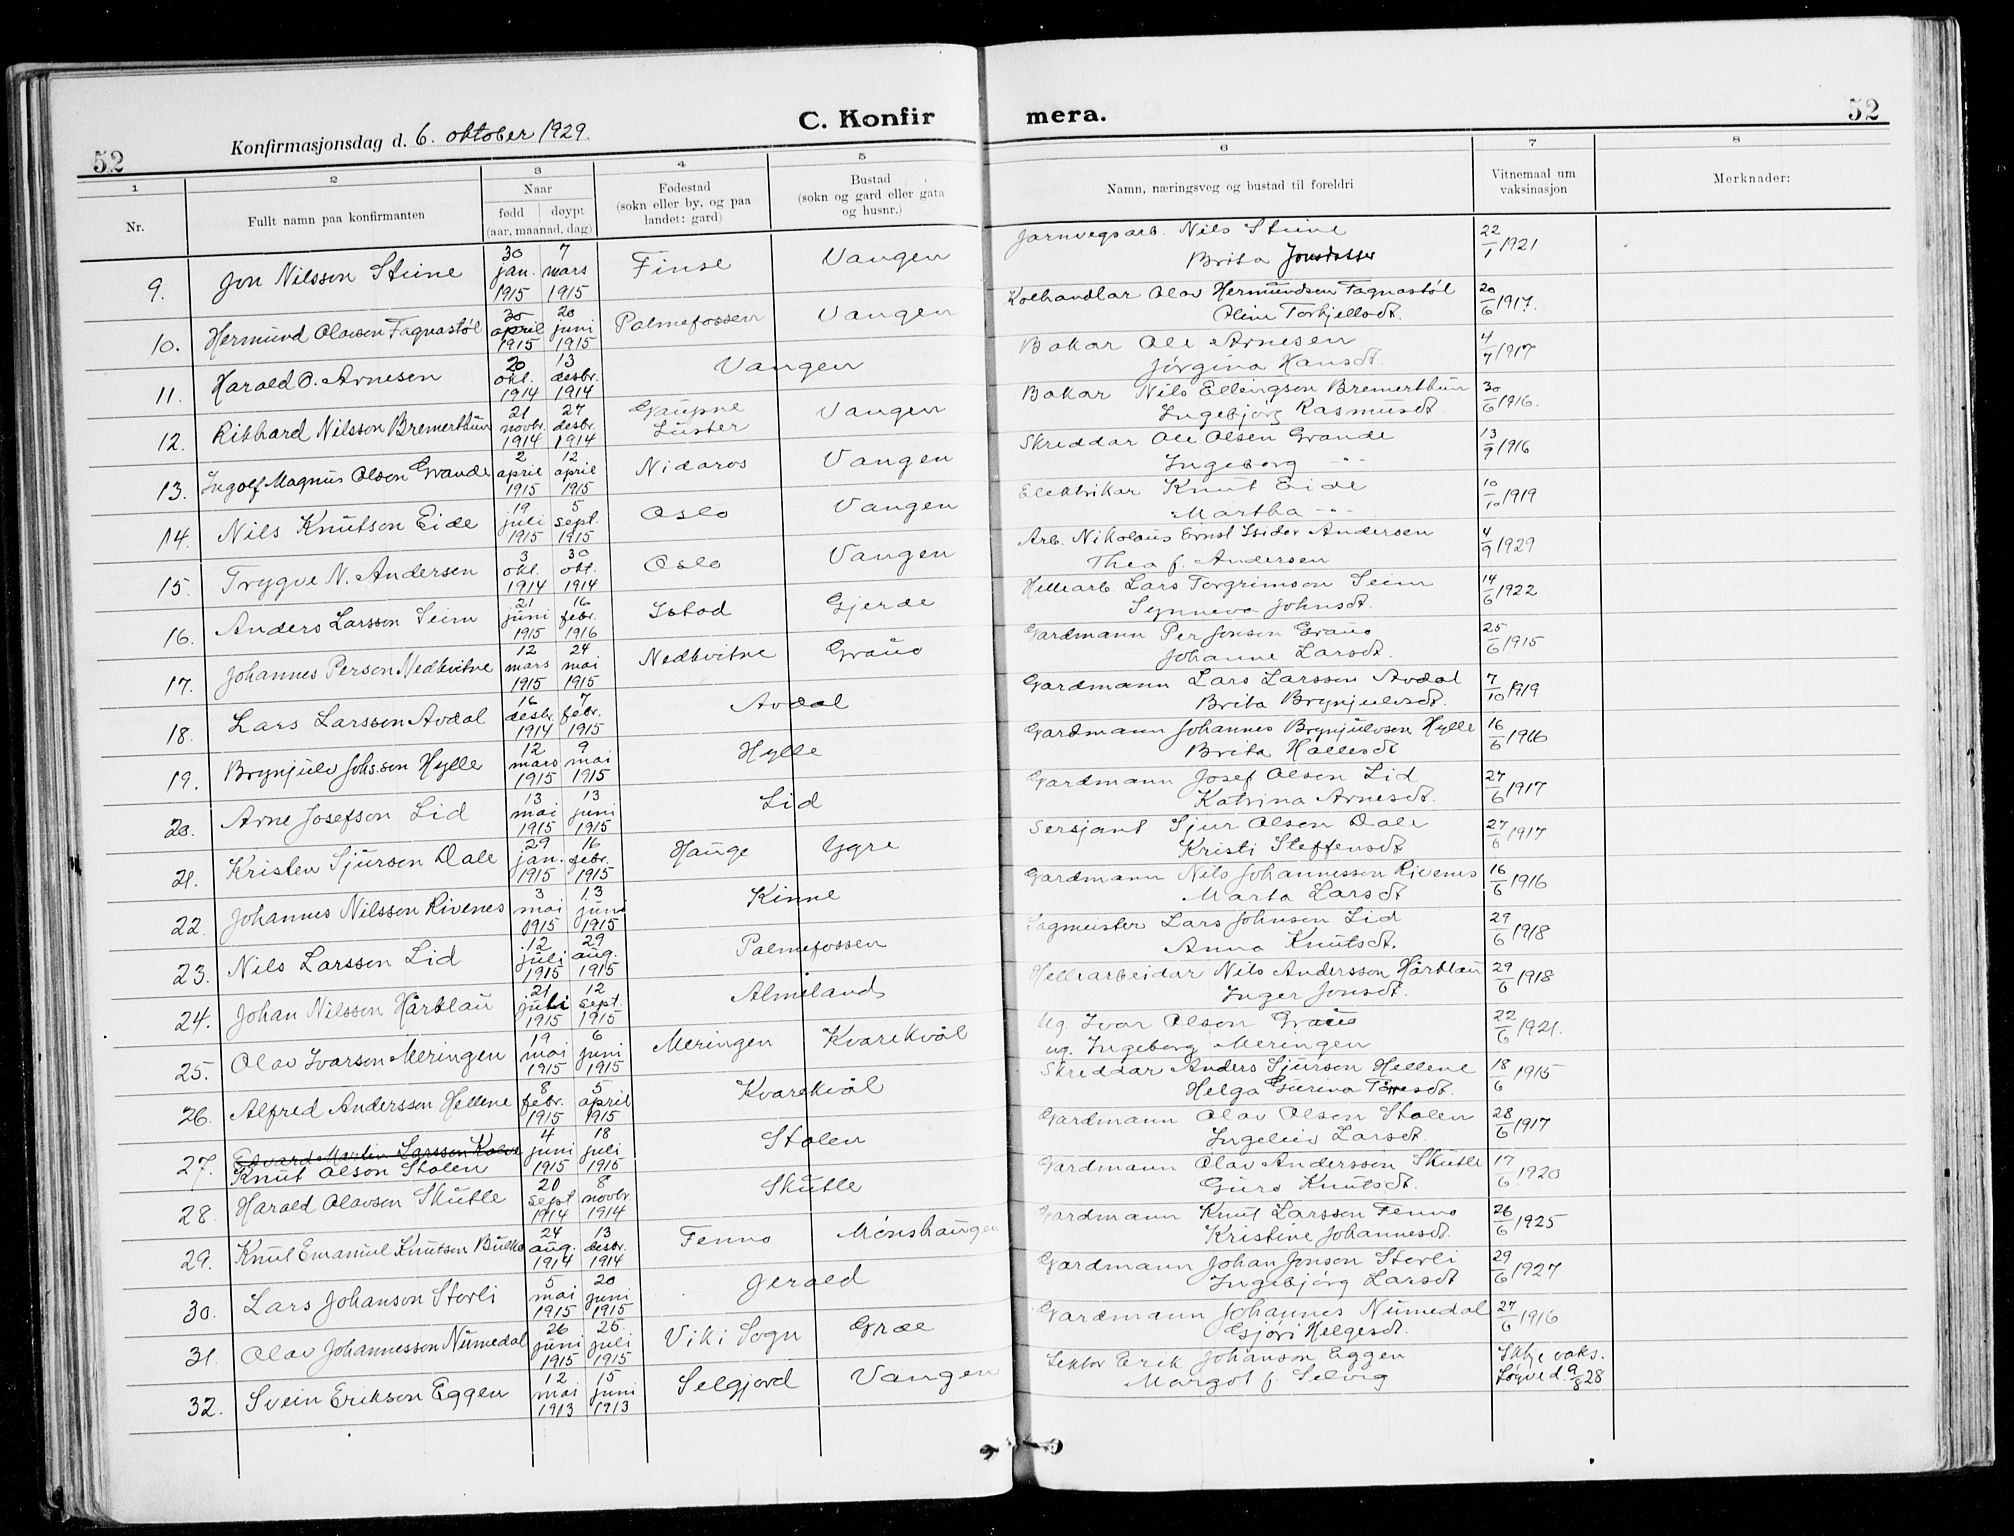 52
Konfirmasjonsdag d. 6. oktober 1929.
C. Konfir mera.
52
1 2 3 4 5 6 7 8
Nr.
Fullt namn paa konfirmanten
Naar
fødd døypt
(aar, maanad, dag)
Fødestad
(sokn eller by, og paa
landet: gard)
Bustad
(sokn og gard eller gata
og husnr.)
Namn, næringsveg og bustad til foreldri
Vitnemaal um
vaksinasjon
Merknader:
9. Jon Nilsson Steine 30 jan. 1915 7 mars 1915 Finse Vangen Jarnvegsarb. Nils Steine 22/1 1921
Brita Jonsdotter
10. Hermund Olavsen Fagnastøl 30 april 1915 20 juni 1915 Palmefossen Vangen Kolhandlar Olav Hermundsen Fagnastøl 20/6 1917.
Oline Torkjellsdt.
11. Harald O. Arnesen 20 okt. 1914 13 desbr. 1914 Vangen Bakar Ole Arnesen 4/7 1917
Jørgina Hansdt.
12. Rikhard Nilsson Bremerthun 21 novbr. 1914 27 desbr. 1914 Gaupne Luster Vangen Bakar Nils Ellingson Bremerthun 30/6 1916.
Ingebjorg Rasmusdt.
13. Ingolf Magnus Olson Grande 2 april 1915 12 april 1915 Nidaros Vangen Skreddar Ole Olsen Grande 13/9 1916
Ingeborg -"-
14. Nils Knutson Eide 19 juli 1915 5 sept. 1915 Oslo Vangen Elektrikar Knut Eide 10/10 1919
Martha -"-
15. Trygve N. Andersen 3 okt. 1914 30 okt. 1914 Oslo Vangen Arb. Nikolaus Ernst Isidor Andersen 4/9 1929
Thea f. Andersen
16. Anders Larsson Seim 21 juni 1915 16 febr. 1916 Istad Gjerde Hellearb. Lars Torgrimson Seim 14/6 1922
Synneva Johnsdt.
17. Johannes Person Nedkvitne 12 mars 1915 24 mai 1915 Nedkvitne Graue Gardmann Per Jonson Graue 25/6 1915
Johanne Larsdt.
18. Lars Larsson Avdal 16 desbr. 1914 7 febr. 1915 Avdal Gardmann Lars Larsson Avdal 7/10 1919
Brita Brynjulvsdt.
19. Brynjulv Johs.son Hylle 12 mars 1915 9 mai 1915 Hylle Gardmann Johannes Brynjulvson Hylle 16/6 1916
Brita Hallesdt
20. Arne Josefson Lid 13 mai 1915 13 juni 1915 Lid Gardmann Josef Olson Lid 27/6 1917
Katrina Arnesdt.
21. Kristen Sjurson Dale 29 jan. 1915 16 febr. 1915 Hauge Ygre Sersjant Sjur Olson Dale 27/6 1917
Kristi Steffensdt
22. Johannes Nilsson Rivenes 3 mai 1915 13 juni 1915 Kinne Gardmann Nils Johannesson Rivenes 16/6 1916
Marta Larsdt
23. Nils Larsson Lid 12 juli 1915 29 aug. 1915 Palmefossen Sagmeister Lars Johnson Lid 29/6 1918
Anna Knutsdt.
24. Johan Nilsson Hårklau 21 juli 1915 12 sept. 1915 Almeland Hellearbeidar Nils Andersson Hårklau 29/6 1918
Inger Jonsdt.
25. Olav Ivarson Meringen 19 mai 1915 6 juni 1915 Meringen Kvarekvål Ug. Ivar Olson Graue 22/6 1921.
ug. Ingeborg Meringen
26. Alfred Andersson Hellene 8 febr. 1915 5 april 1915 Kvarekvål Skreddar Anders Sjurson Hellene 18/6 1915
Helga Gurina Tørresdt.
27. Edvard Martin Larsson
Knut Olson Stolen 4 juni 1915 18 juli 1915 Stolen Gardmann Olav Olson Stolen 28/6 1917
Ingeleiv Larsdt.
28. Harald Olavson Skutle 20 sept 1914 8 novbr. 1914 Skutle Gardmann Olav Andersson Skutle 17/6 1920
Guro Knutsdt.
29. Knut Emanuel Knutson Bulko 24 aug. 1914 13 desbr. 1914 Fenno Mønshaugen Gardmann Knut Larsson Fenno 26/6 1925
Kristine Johannesdt.
30. Lars Johanson Storli 5 mai 1915 20 juni 1915 Jerald Gardmann Johan Jonson Storli 29/6 1927
Ingebjørg Larsdt
31. Olav Johannesson Numedal 26 juni 1915 25 juli 1915 Vik i Sogn Græe Gardmann Johannes Numedal 27/6 1916
Gjøri Helgesdt.
32. Svein Erikson Eggen 12 mai 1913 15 juni 1913 Selgjord Vangen Lektor Erik Johanson Eggen Ikkje vaks.
Margot f. Selvig Løyve d. 9/8 28